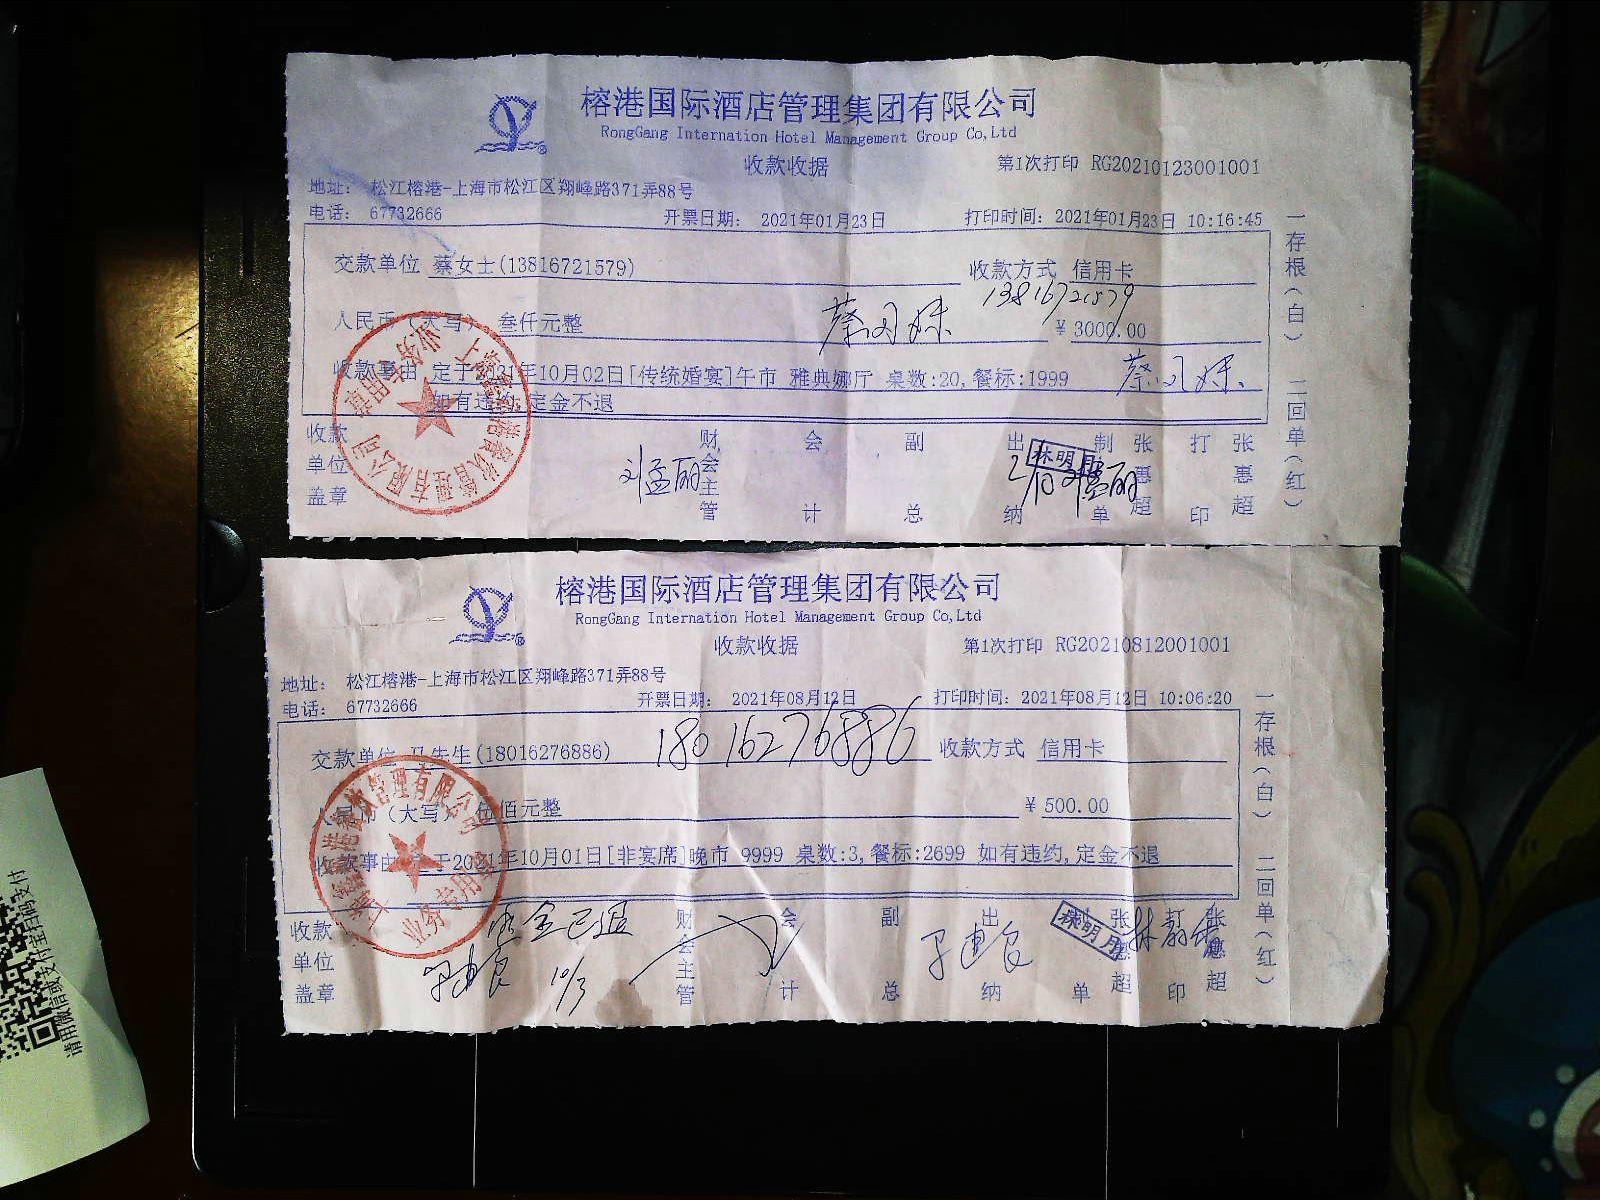 榕港国际酒店管理集团有限公司
RongGang Internation Hotel Management Group Co,Ltd
收款收据 第1次打印 RG20210123001001
地址: 松江榕港-上海市松江区翔峰路371弄88号
电话: 67732666 开票日期: 2021年01月23日 打印时间: 2021年01月23日 10:16:45
交款单位 蔡女士(13816721579) 收款方式 信用卡
13816721579
人民币(大写) 叁仟元整 ¥ 3000.00
收款事由 定于2021年10月02日[传统婚宴]午市 雅典娜厅 桌数:20,餐标:1999
如有违约,定金不退
收款单位盖章 刘孟丽 财会主管 会计 副总 出纳 制单 张惠超 打印 张惠超
林明月
一存根(白) 二回单(红)
业务专用章
榕港国际酒店管理集团有限公司
RongGang Internation Hotel Management Group Co,Ltd
收款收据 第1次打印 RG20210812001001
地址: 松江榕港-上海市松江区翔峰路371弄88号
电话: 67732666 开票日期: 2021年08月12日 打印时间: 2021年08月12日 10:06:20
交款单位 马先生(18016276886) 18016276886 收款方式 信用卡
人民币(大写) 伍佰元整 ¥ 500.00
收款事由 定于2021年10月01日[非宴席]晚市 9999 桌数:3,餐标:2699 如有违约,定金不退
收款单位盖章 财会主管 会计 副总 出纳 制单 张惠超 打印 张惠超
10/3
林明月
一存根(白) 二回单(红)
业务专用章
请用微信或支付宝扫码支付